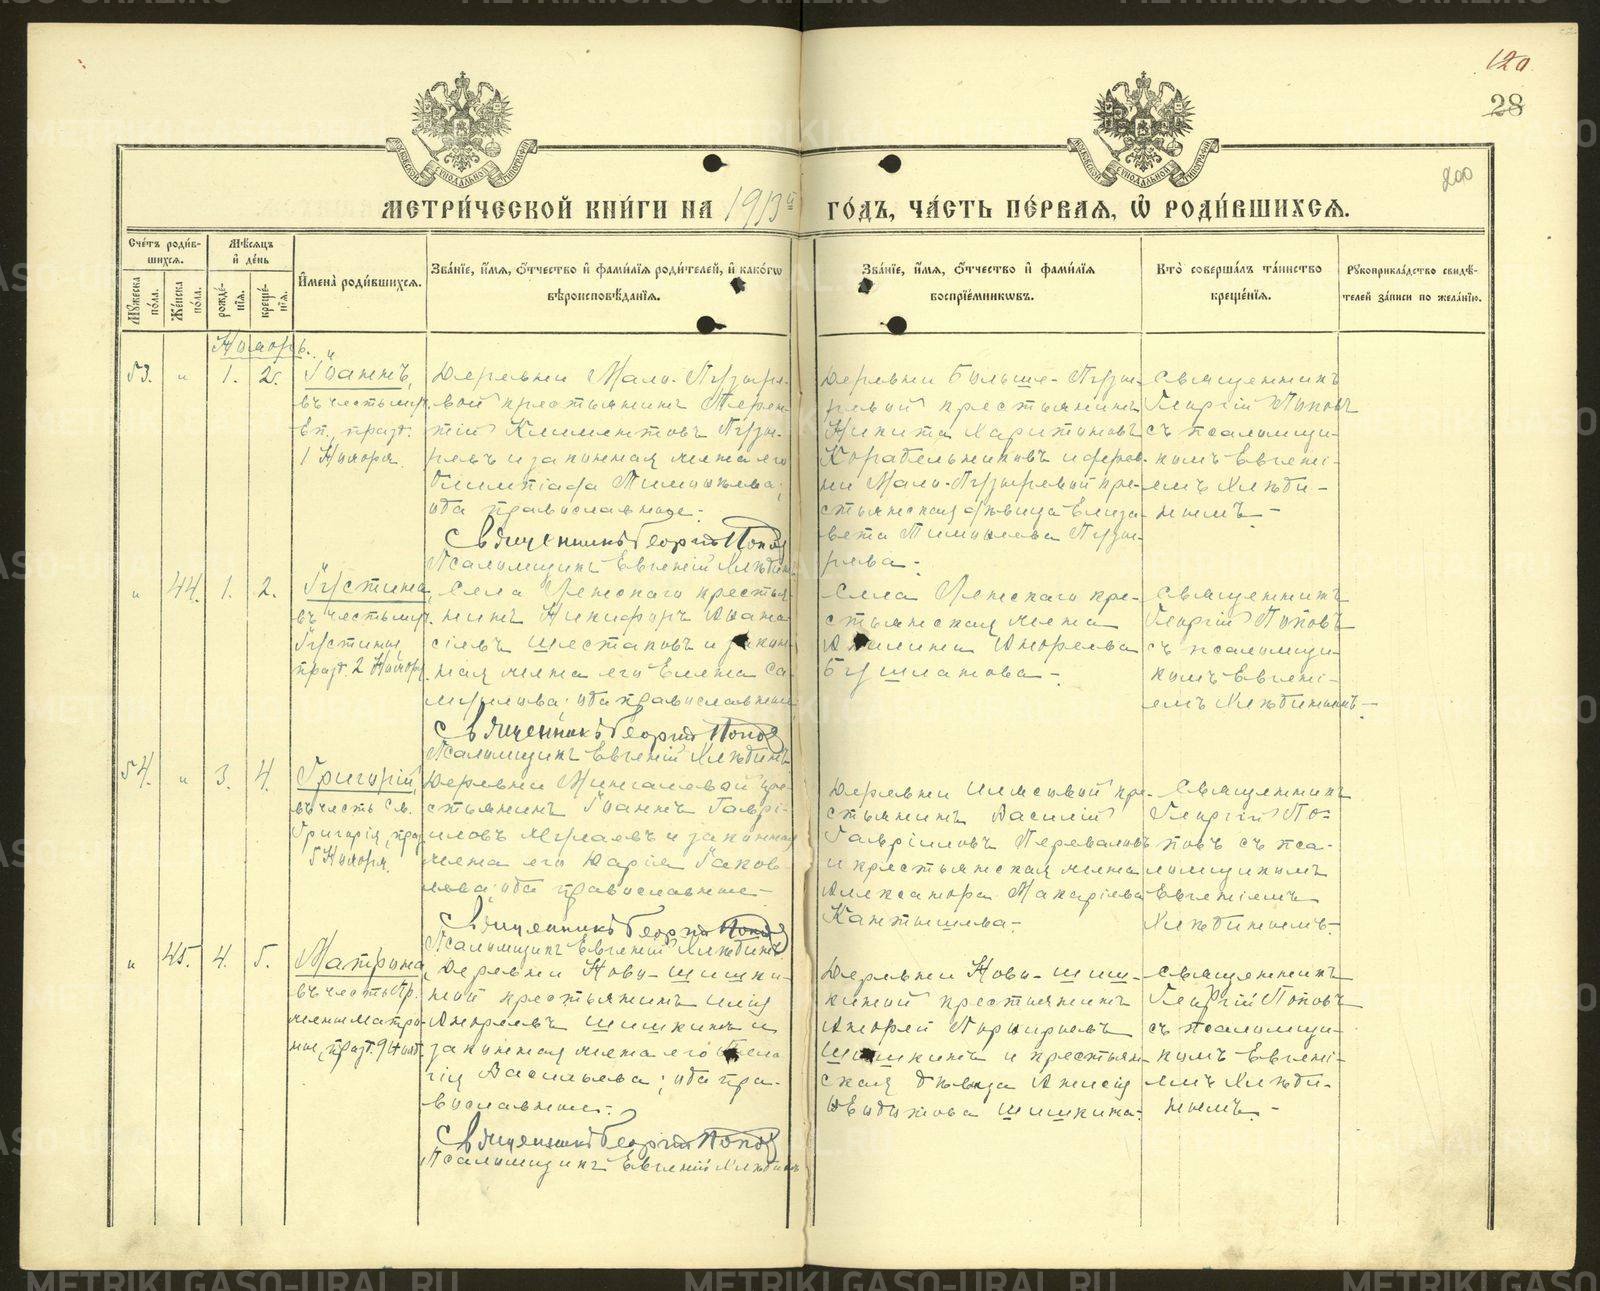 120
28
200
МОСКОВСКОЙ СѴНОДАЛЬНОЙ ТИПОГРАФІИ
МОСКОВСКОЙ СѴНОДАЛЬНОЙ ТИПОГРАФІИ
МЕТРИ́ЧЕСКОЙ КНИ́ГИ НА 1913й ГО́ДЪ, ЧА́СТЬ ПЕ́РВАЯ, Ѡ РОДИ́ВШИХСЯ.
Сче́тъ роди́вшихся.
Му́жеска по́ла.
Же́нска по́ла.
Мѣ́сяцъ и де́нь
рожде́нія.
креще́нія.
Имена̀ роди́вшихся.
Зва́ніе, и́мя, о́тчество и фами́лія роди́телей, и како́гѡ
вѣроисповѣ́данія.
Зва́ніе, и́мя, о́тчество и фами́лія
воспріе́мниковъ.
Кто̀ соверша́лъ та́инство
креще́нія.
Рукоприкла́дство свидѣ́-
телей за́писи по жела́нію.
Ноябрь.
53. " 1. 2.
Іоаннъ,
въ честь муч.
Еп., празд.
1 Ноября.
Деревни Мало-Пузыре-
вой крестьянинъ Терен-
тій Климентовъ Пузы-
ревъ и законная жена его
Олимпіада Тимофеева;
оба православные.-
Священникъ Георгій Поповъ
Псаломщикъ Евгеній Хлѣбинъ
Деревни Больше-Пузы-
ревой крестьянинъ
Никита Харитоновъ
Корабельниковъ и дерев-
ни Мало-Пузыревой кре-
стьянская дѣвица Елиза-
вета Тимофеева Пузы-
рева.-
Священникъ
Георгій Поповъ
съ псаломщи-
комъ Евгені-
емъ Хлѣби-
нымъ.-
" 44. 1. 2.
Іустина,
въ честь муч.
Іустины,
празд. 2 Ноября
Села Уетскаго крестья-
нинъ Никифоръ Аѳана-
сіевъ Шестаковъ и закон-
ная жена его Елена Са-
мУилова; оба православные
Священникъ Георгій Поповъ
Псаломщикъ Евгеній Хлѣбинъ
Села Уетскаго кре-
стьянская жена
Акилина Андреева
Бушланова.-
Священникъ
Георгій Поповъ
съ псаломщи-
комъ Евгені-
емъ Хлѣбинымъ.-
54. " 3. 4.
Григорій,
въ честь св.
Григорія, праз.
5 Ноября.
Деревни Мингалевой кре-
стьянинъ Іоаннъ Гаврі-
иловъ и законная
жена его Марія Іаков-
лева; оба православные.-
Священникъ Георгій Поповъ
Псаломщикъ Евгеній Хлѣбинъ
Деревни кре-
стьянинъ Василій
Гавріиловъ Переваловъ
и крестьянская жена
Александра Макаріева
Кантышева.-
Священникъ
Георгій По-
повъ съ пса-
ломщикомъ
Евгеніемъ
Хлѣбинымъ.-
" 45. 4. 5.
Матрона,
въ честь пр.
жены Матро-
ны, празд. 9 Нояб.
Деревни Ново-Шишки-
ной крестьянинъ Илія
Андреевъ Шишкинъ и
законная жена его Пела-
гія Васильева; оба пра-
вославные.-
Священникъ Георгій Поповъ
Псаломщикъ Евгеній Хлѣбинъ
Деревни Ново-Шиш-
киной крестьянинъ
Андрей Порфирьевъ
Шишкинъ и крестьян-
ская дѣвица Анисія
Ѳеодотова Шишкина.-
Священникъ
Георгій Поповъ
съ псаломщи-
комъ Евгені-
емъ Хлѣби-
нымъ.-
METRIKI.GASO-URAL.RU